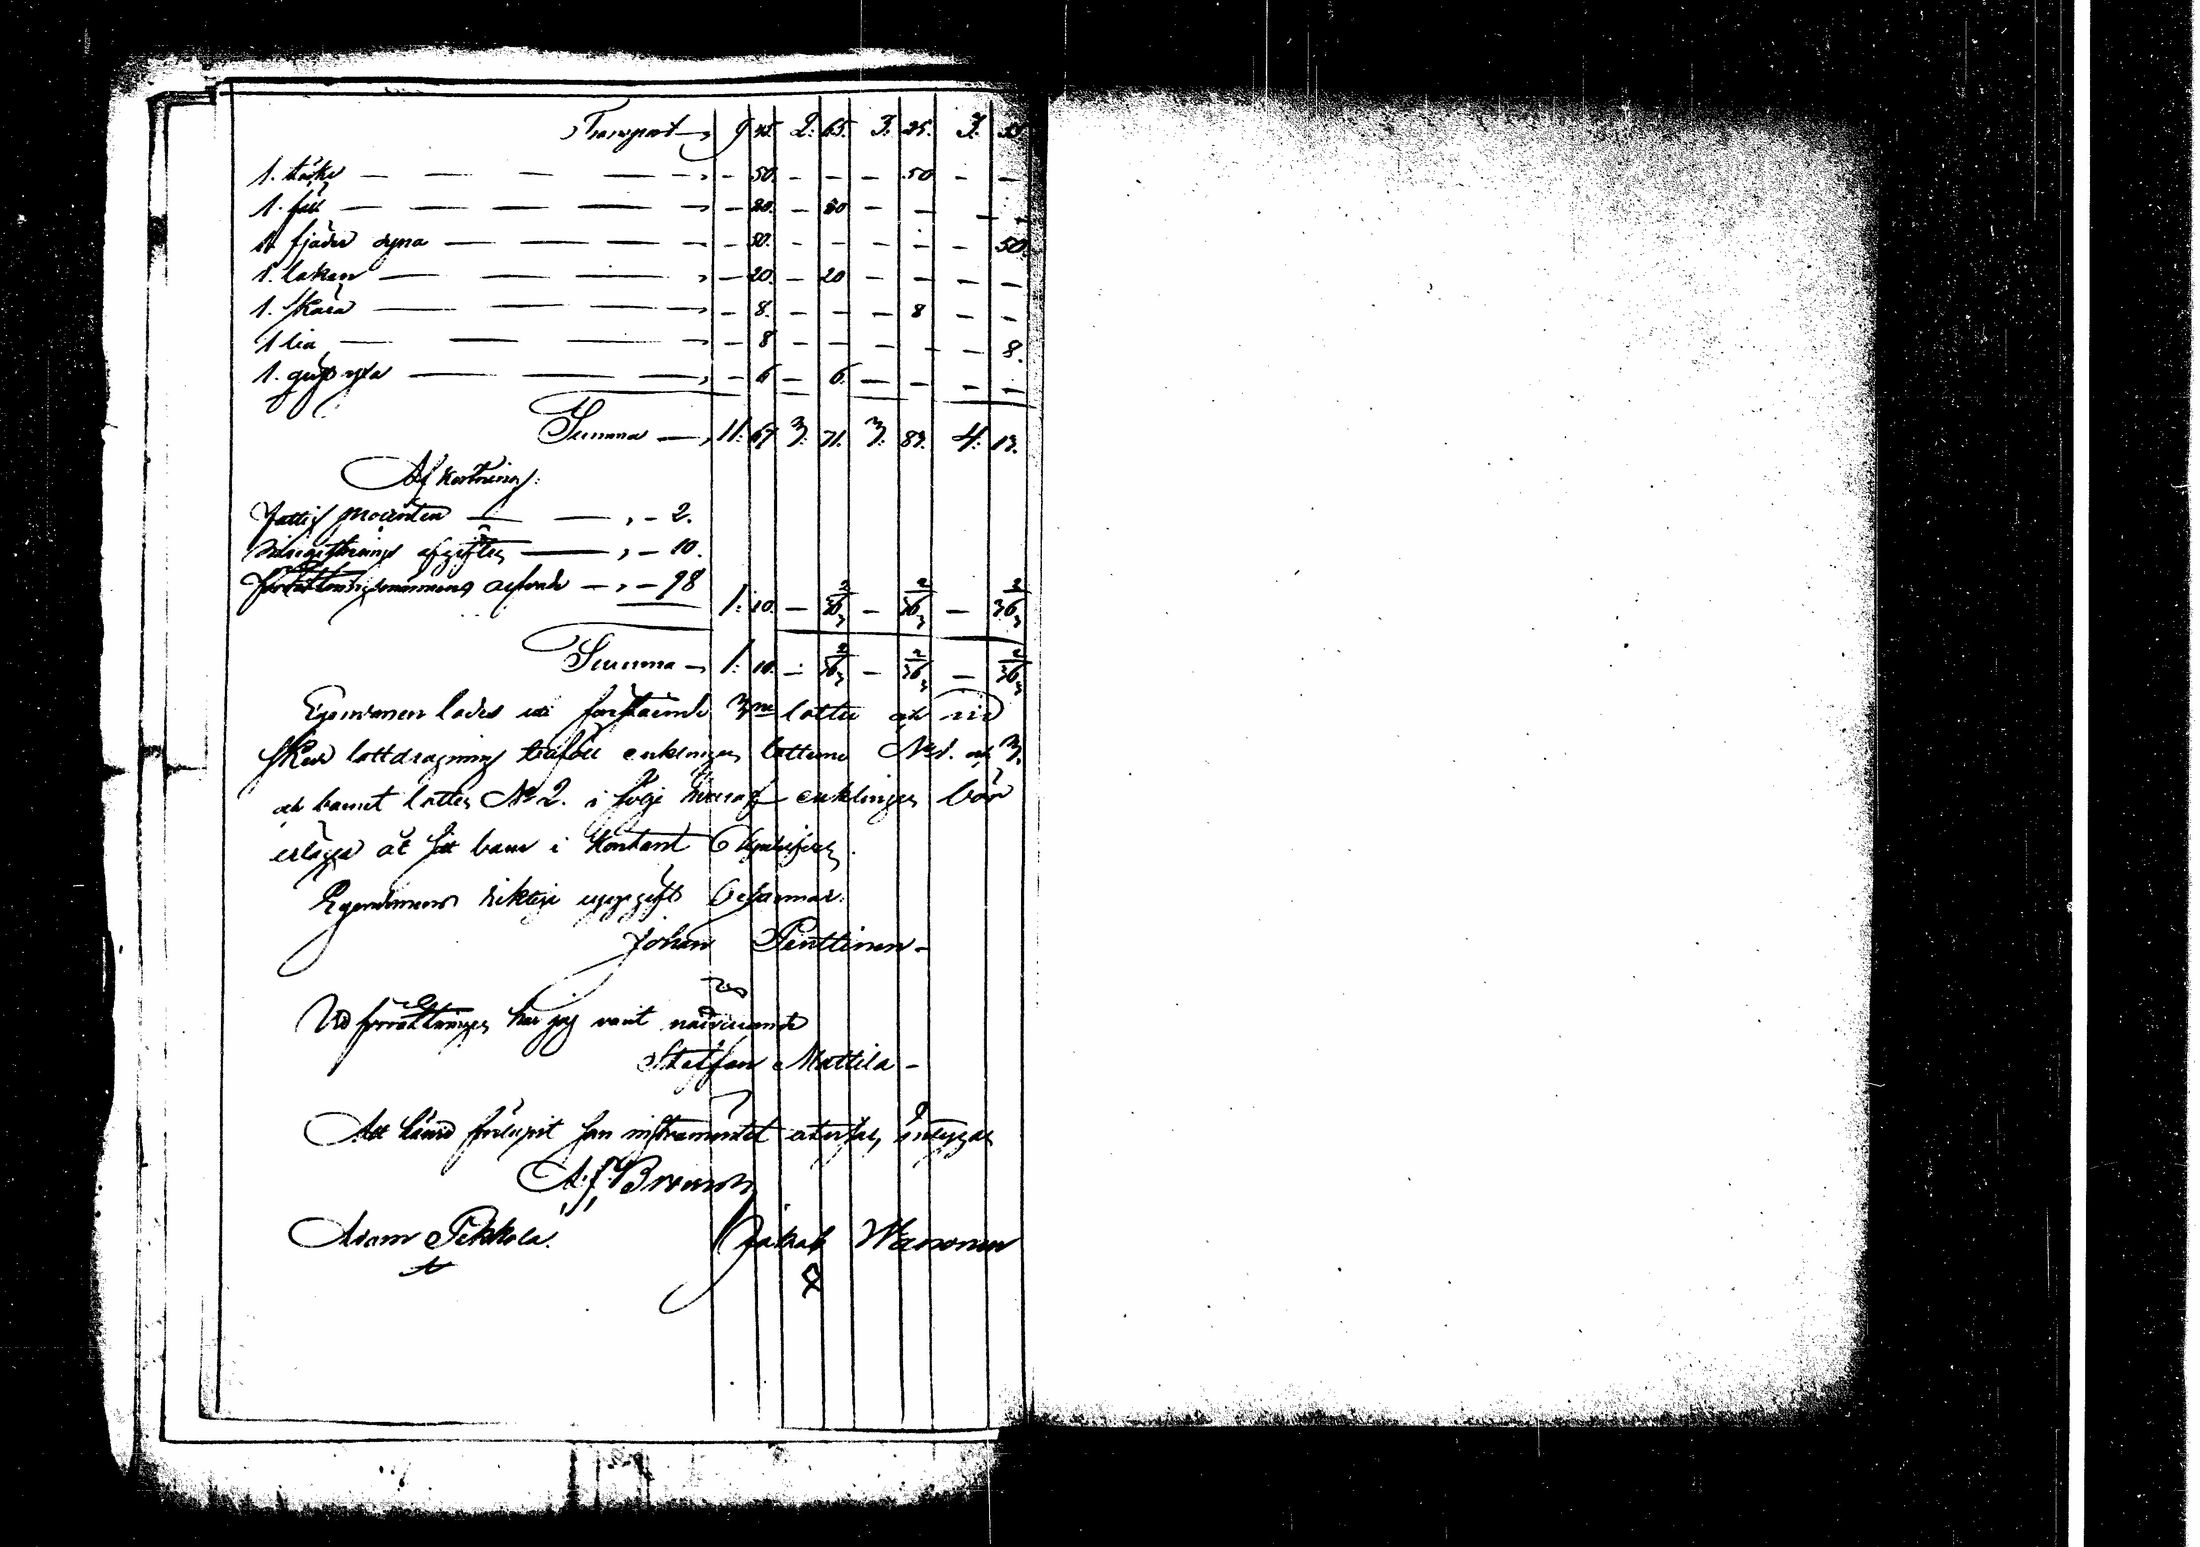 Transport — 9. 45. 2. 65. 3. 25. 3. 55
1. täcke — — — — — - 50. - - - 50 - -
1. fäll — — — — — - 20. - 20 - - - -
1. fjäder dyna — — — — - 50. - - - - - 50.
1. lakan — — — — - 20. - 20 - - - -
1. skära — — — — - 8. - - - 8 - -
1 lia — — — — - 8 - - - - - 8.
1. yxa — — — — - 6 - 6. - - - -
Summa — 11. 67 3. 71. 3. 83. 4. 13.
Afkortning:
Fattig procenten — — - 2.
afgiften — - 10.
Förrättningsmännens arfvode — - 98
1. 10. - 36 2/3 - 36 2/3 - 36 2/3
Summa — 1. 10. - 36 2/3 - 36 2/3 - 36 2/3
Egendomen lades uti förestående 3ne lotter och vid
sked lottdragning tillföll enklingen lotterne No 1. och 3.
och barnet lotten No 2. i följe hvaraf enklingen bör
erlägga åt sitt barn i kontant 6 kopek silfver.
Egendomens riktiga uppgift betannar:
Johan Penttinen -
Vid förrättningen har jag varit närvarande
Staffan Mattila -
Att så förelupit som instrumentet utvisar, intygar
A. J.
Adam Pekkola. Jakob Wanonen